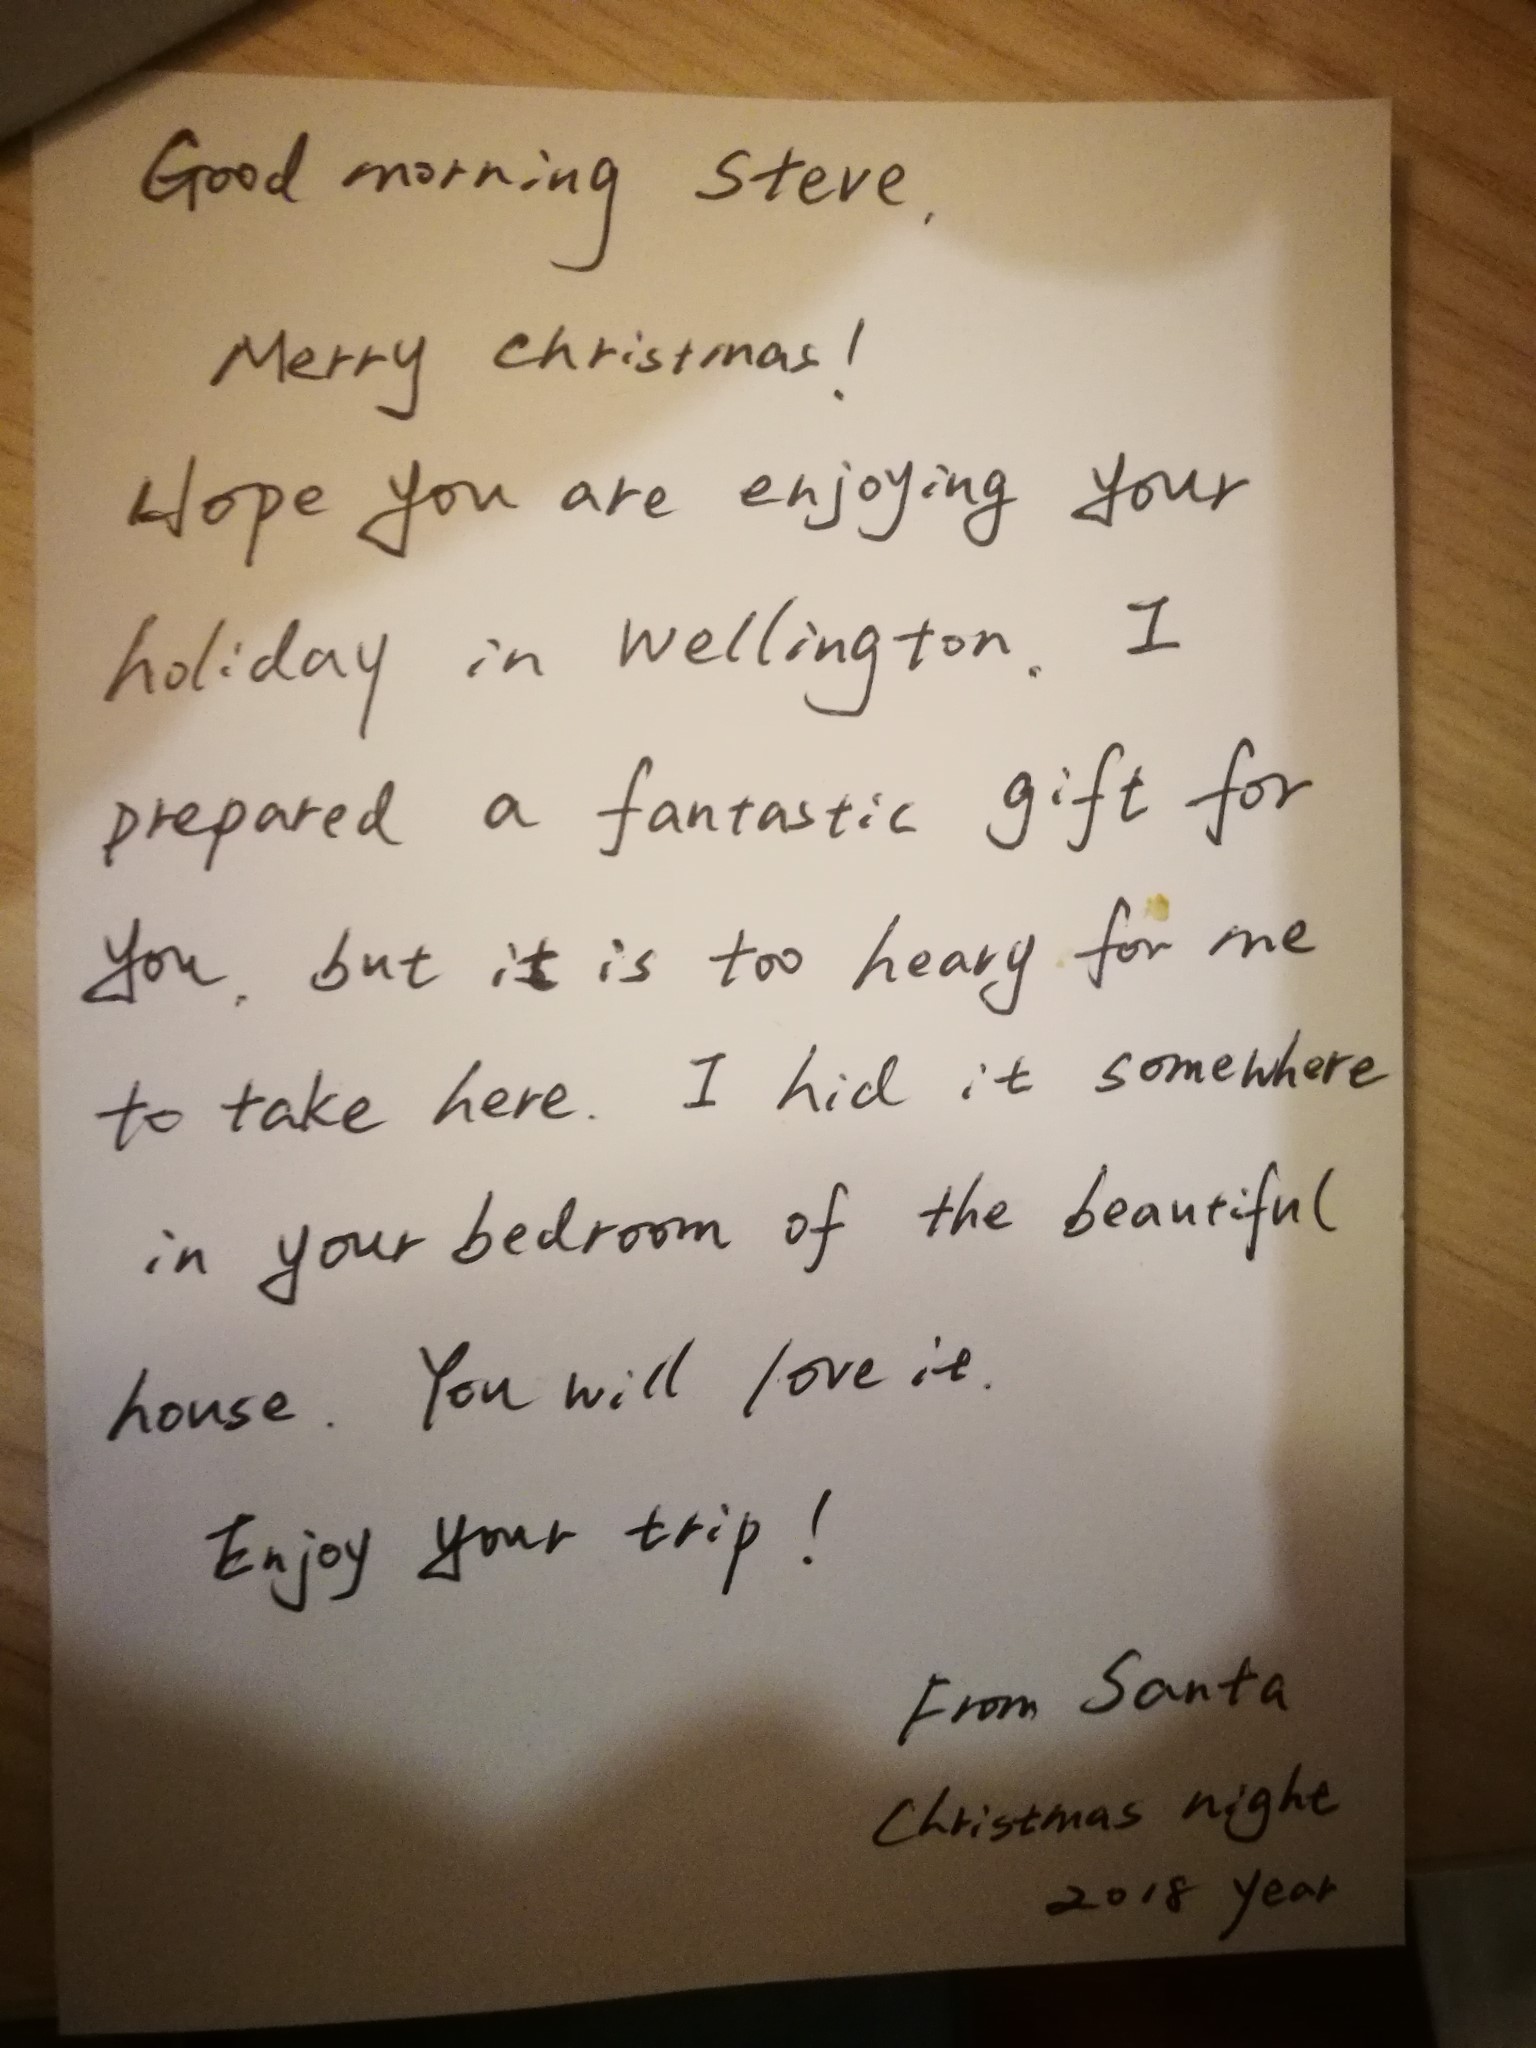 Good morning Steve,
Merry christmas!
Hope you are enjoying your
holiday in Wellington. I
prepared a fantastic gift for
you, but it is too heavy for me
to take here. I hid it somewhere
in your bedroom of the beautiful
house. You will love it.
Enjoy your trip!
From Santa
Christmas night
2018 year